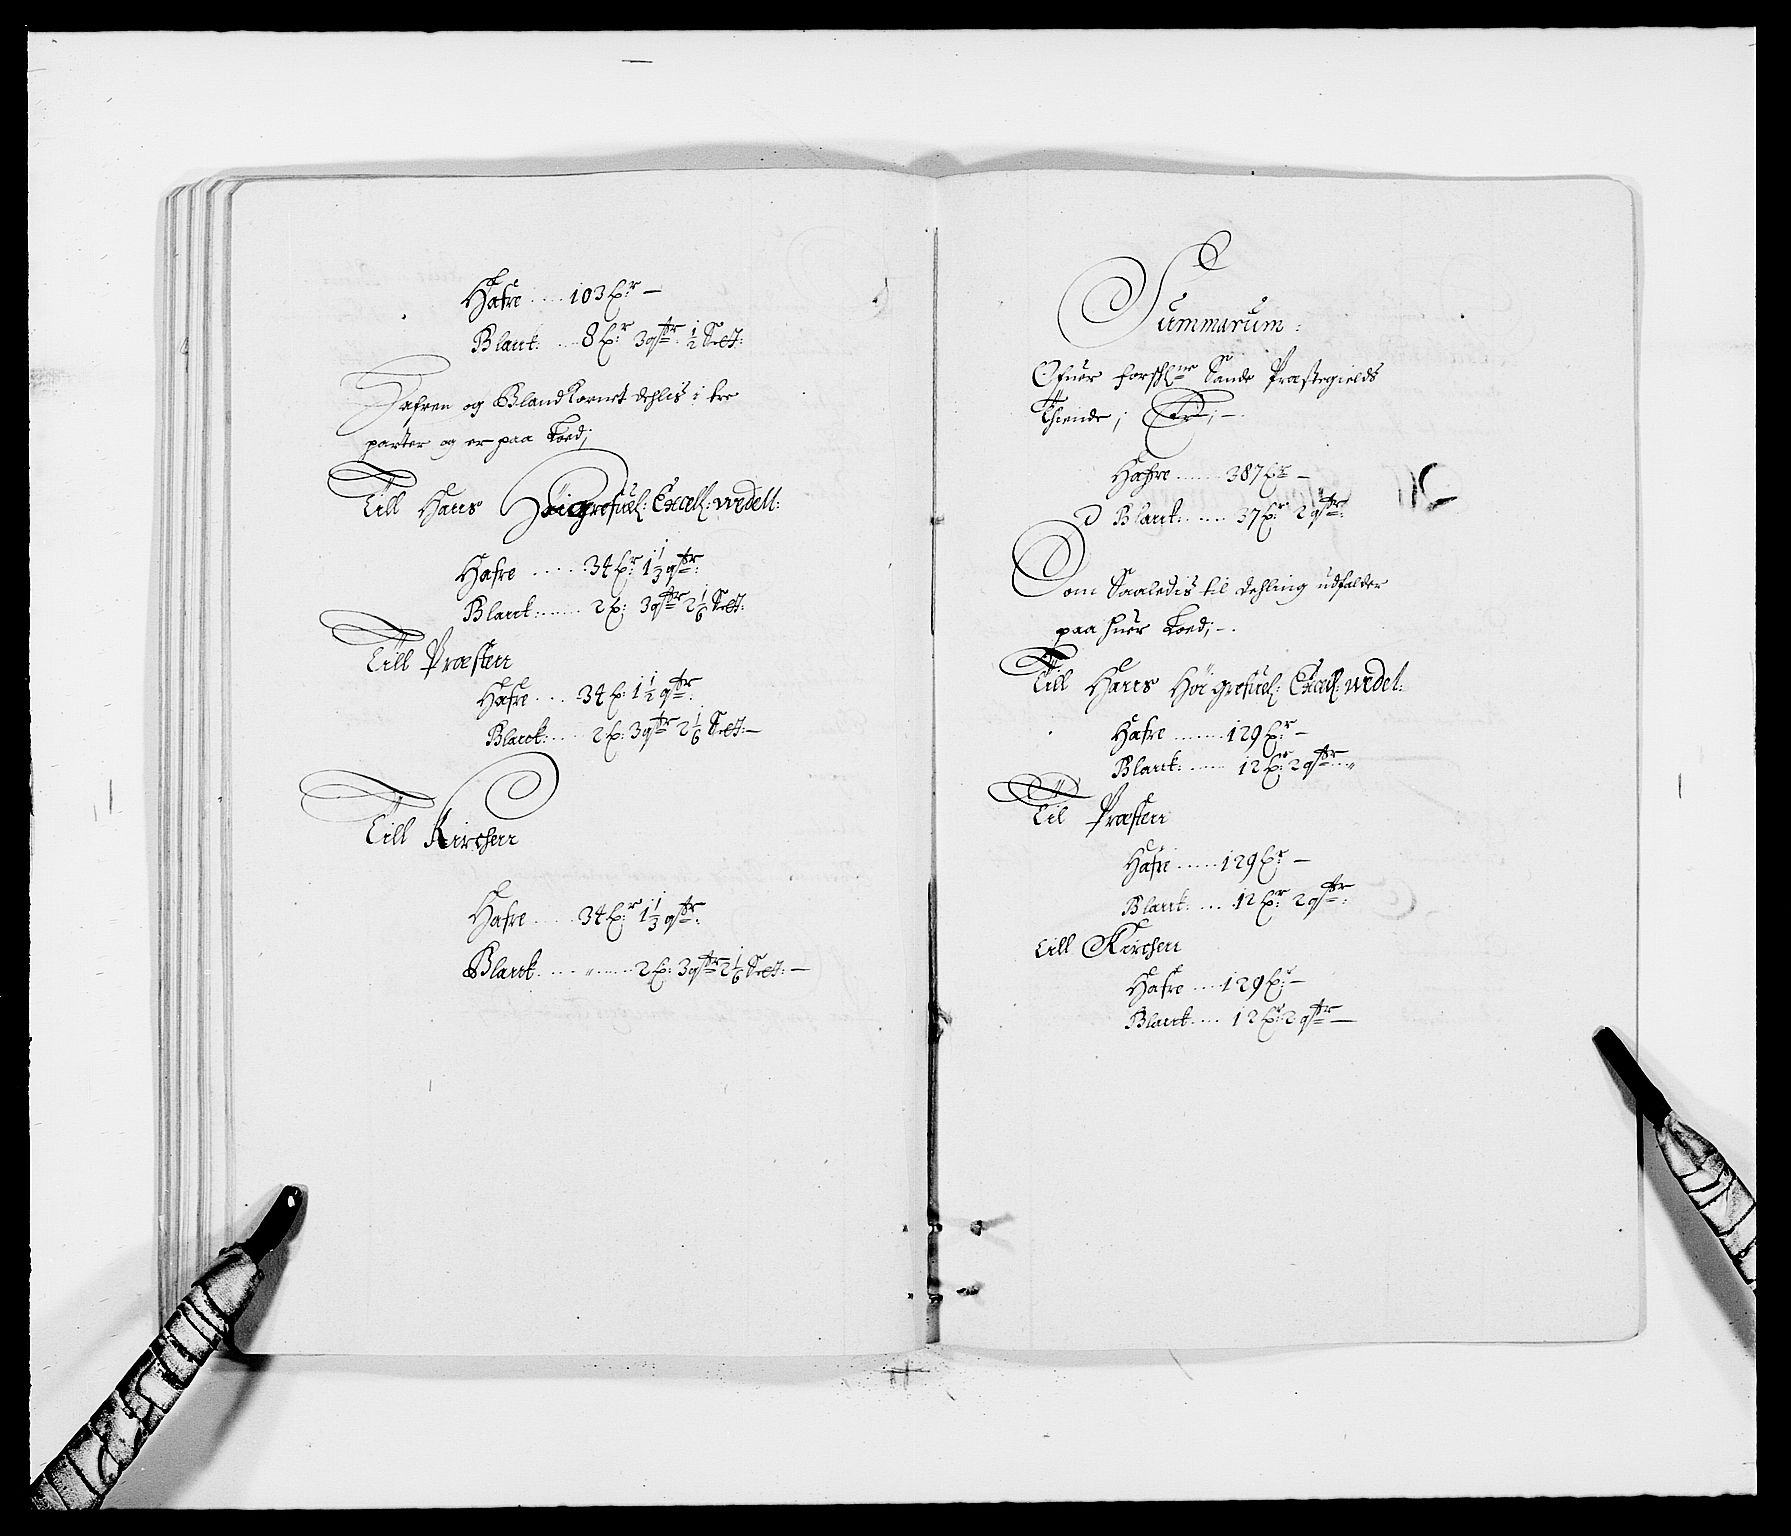 Hafre .... 103 Tr: —
Blant: .... 8 Tr: 3 qtr: ½ Sett:
Hafren og Blandkornet dehlis i tre
parter og er paa Loed;
Till Hans Höigrefuel: Excell: wedell:
Hafre ..... 34 Tr: 1⅓ qtr:
Blant: ..... 2 T: 3 qtr 2⅙ Sett:
Till Præsten
Hafre .... 34 T: 1½ qtr:
Blant: .... 2 T: 3 qtr 2⅙ Sett: —
Till Kirchen
Hafre ..... 34 Tr: 1⅓ qtr:
Blant .... " .... 2 T: 3 qtr 2⅙ Sett: —
Summarum:
Ofuer forschl:ne Sande Præstegields
Thiende; Er; —.
Hafre ..... 387 Tr —
Blant: ..... 37 Tr: 2 qtr:
Som Saaledis til dehling udfalder
paa huer Loed; —.
Till Hans Höigrefuel: Excell: wedel:
Hafre ...... 129 Tr: —
Blant: ..... 12 Tr: 2 qtr: .. "
Til Præsten
Hafre ..... 129 Tr: —
Blant: .... 12 Tr: 2 qtr:
Till Kirchen
Hafre .... 129 Tr: —
Blant .... 12 Tr: 2 qtr —